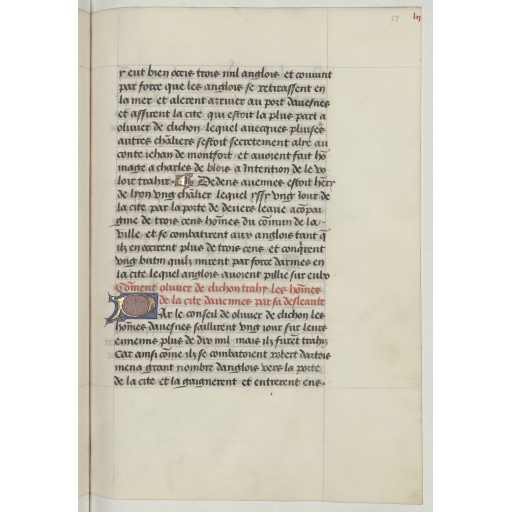 52 lij
y eut bien occis trois mil anglois et convint
par force que les anglois se retirassent en
la mer et alerent arriver au port davesnes
et assirent la cite qui estoit la plus part a
olivier de clichon lequel avecques plusie͛s
autres chl̃iers sestoit secretement alye au
conte iehan de montfort et avoient fait hõ
mage a charles de blois a Intention de le vo
loir trahir Dedens avennes estoit hẽry
de lyon vng chl̃ier lequel yssy vng Iour de
la cite par la porte de devers leaue acõpai
gnie de trois cens hom̃es du cõmun de la
ville et se combatirent aux anglois tant q̃
ilz en occirent plus de trois cens et conq̃rent
vng butin quilz mirent par force darmes en
la cite lequel anglois avoient pillie sur eulx
Com̃ent olivier de clichon trahy les hom̃es
de la cite davennes par sa desleaute
Par le conseil de olivier de clichon les
hom̃es davesnes saillirent vng iour sur leurs
ennemis plus de dix mil mais ilz furẽt trahiz
Car ainsi cõme ilz se combatoient robert dartois
mena grant nombre danglois vers la porte
de la cite et la gaignerent et entrerent ens